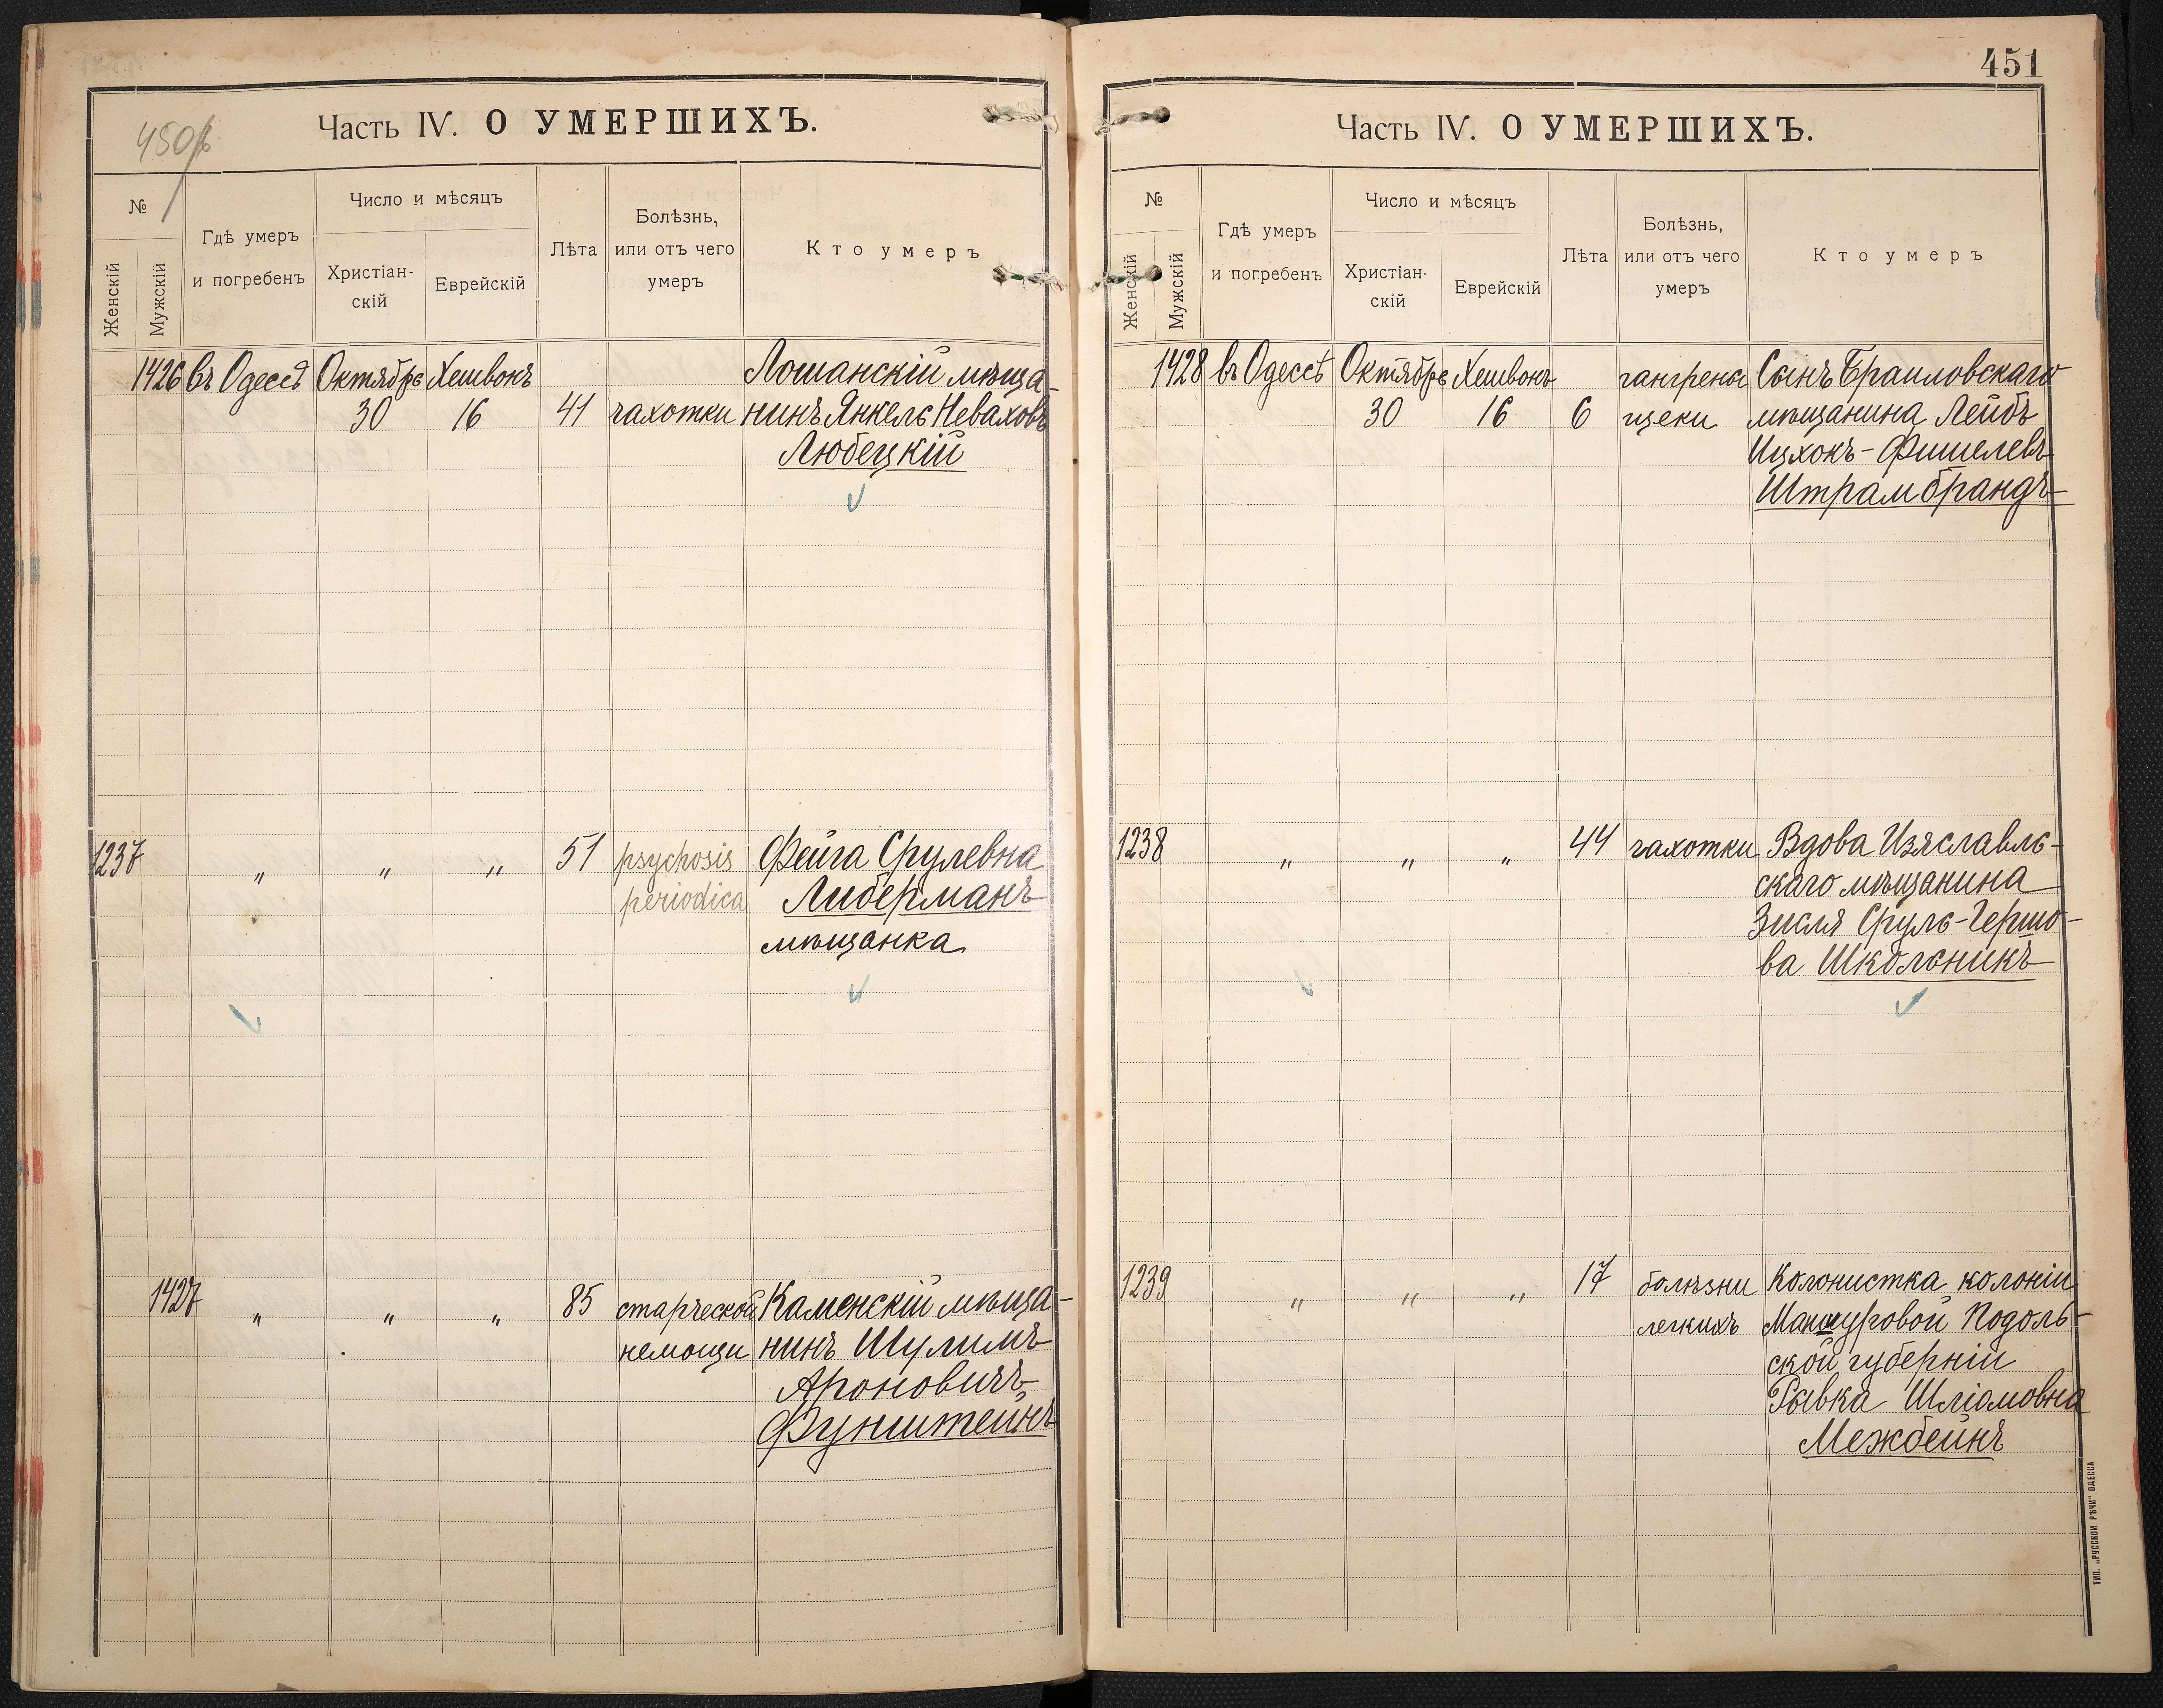 450
Часть IV. О УМЕРШИХЪ.
№
Женскій
Мужскій
Гдѣ умеръ
и погребенъ
Число и мѣсяцъ
Христіан-
скій
Еврейскій
Лѣта
Болѣзнь,
или отъ чего
умеръ
Кто умеръ
1426 въ Одессѣ Октябрь Хешвонъ Лошанскій мѣща-
30 16 41 чахотки нинъ Янкель Неваховъ
Любецкій
1237 " " " 51 psychosis Фейга Срулевна
periodica Либерманъ
мѣщанка
1427 " " " 85 старческой Каменскій мѣща-
немощи нинъ Шулимъ
Ароновичъ
Фунштейнъ
451
Часть IV. О УМЕРШИХЪ.
№
Женскій
Мужскій
Гдѣ умеръ
и погребенъ
Число и мѣсяцъ
Христіан-
скій
Еврейскій
Лѣта
Болѣзнь,
или отъ чего
умеръ
Кто умеръ
1428 въ Одессѣ Октябрь Хешвонъ гангрены Сынъ Браиловскаго
30 16 6 щеки мѣщанина Лейбъ
Ицхокъ-Фишелевъ
Штрамбрандъ
1238 " " " 44 чахотки Вдова Изяславль-
скаго мѣщанина
Зисля Сруль-Гершо-
ва Школьникъ
1239 " " " 17 болѣзни Колонистка колоніи
легкихъ Маншуровой Подоль-
ской губерніи
Рывка Шліомовна
Межбейнъ
ТИП. „РУССКОЙ РѢЧИ" ОДЕССА